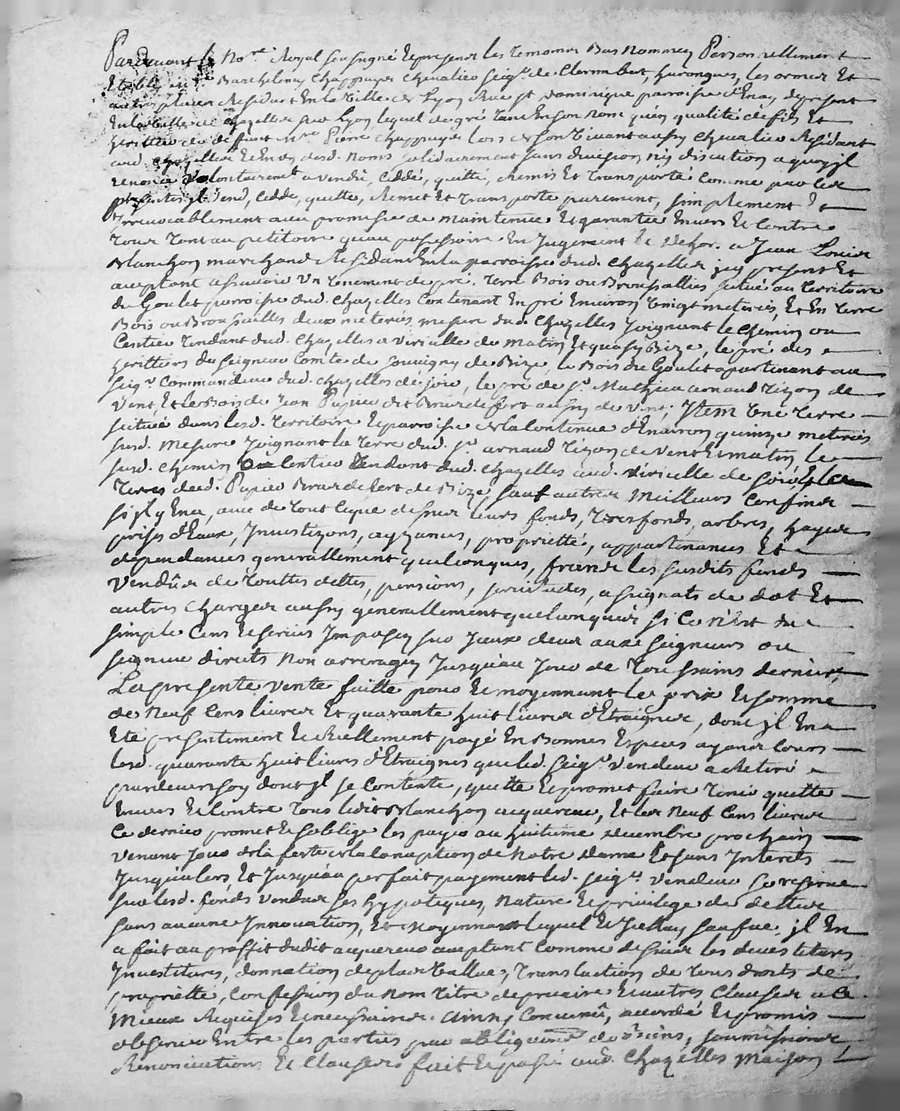 Pardevant le No.re Royal soussigné Et present les temoins Bas Nommez Personnellement
Etably Barthelemy Chappuys Chevalier seig.r de Clerimbert, harongues, les ormes Et
autres places Residant En la Ville de Lyon Rue s.t Dominique parroisse d'Enay de present
En la Ville de Chazelles sur Lyon lequel de gré tant En son Nom qu'en qualité de fils Et
heritier de deffunt M.re Pierre Chappuys Lors de son Vivant aussy Chevalier Residant
aud. Chazelles Et En des d. Noms solidairement sans division ny discution a quoy jl
renonce volontairem.t a vendû, cedé, quitté, Remis Et transporté Comme par les
presentes jl vend, cedde, quitte, Remet Et transporte purement, simplement Et
Irrevocablement avec promesse de maintenue Et garantie Envers Et Contre
tous tant au petitoire qu'au possessoire En Jugement Et dehors a Jean Louis
Blanchon marchand Residant En la parroisse dud. Chazelles jcy present Et
aceptant a scavoir Un tenement de pré, terre Bois ou Broussailles situé au territoire
du Goulet parroisse dud. Chazelles Contenant En pré Environ Vingt meterées, Et En terre
Bois ou Broussailles deux meterées mesure dud. Chazelles Joignant le chemin ou
Sentier tendant dud. Chazelles a Virielle de matin Et quasy Bize, le pré des
heritiers du seigneur Comte de Souvigny de Bize, le Bois du Goulet apartenant au
seig.r Commandeur dud. Chazelles de soir, le pré de s.r Mathieu arnaud Tizon de
vent Et le Bois de Jean Pupier dit Brardefert aussy de vent. Item Une Terre
scituée dans lesd. territoire Et parroisse de la Continue d'Environ quinze meterées
susd. mesure Joignant la Terre dud. s.r arnaud Tizon de vent Et matin, le
susd. chemin ou Sentier tendant dud. Chazelles aud. Virielle de soir, Et les
Terres dud. Pupier Brardefert de Bize, sauf autres meilleurs Confins
si jl y En a, avec de tout ce que dessus leurs fonds, tresfonds, arbres, hayes
prises d'Eaux, Investizons, ayzances, proprietté, appartenances Et
dependances generallement quelconques, francs les susdits fonds
Vendûs de touttes dettes, pensions, servitudes, assignats de dot Et
autres charges aussy generallement quelconques si Ce n'est du
simple Cens Et servis Imposez sur Iceux deus aux seigneurs ou
seigneur directs Non arreragez Jusqu'au Jour de Toussaints dernier,
La presente vente faitte pour Et moyennant le prix Et somme
de Neuf Cens livres Et quarante huit livres d'Etraignes, dont jl En a
Eté presentiment Et reellement payé En Bonnes Especes ayant Cours
lesd. quarante huit livres d'Etraignes que led. seig.r Vendeur a Retiré
pardevers soy dont jl se Contente, quitte Et promet faire tenir quitte
Envers Et Contre Tous ledit Blanchon acquereur, Et les Neuf Cens livres
Ce dernier promet Et s'oblige les payer au huitiême decembre prochain
Venant Jour de la feste de la Conception de Notre Dame Et sans Interets
Jusqu'alors Et Jusqu'au perfait payement led. seig.r vendeur se reserve
sur lesd. fonds vendus ses hypoteques, Nature Et privilege de dettes
sans aucune Innovation, Et moyennant lequel Et Icelluy sauf eue jl En
a fait au proffit dudit acquereur aceptant Comme dessus les devestitures
Investitures, donnation de plus Value, Translaction de Tous droits de
propriétté, Confession du Nom Titre de precaire Et autres Clauses a Ce
Mieux Requises Et necessaires. Ainsy Convenû, accordé Et promis
observer Entre les parties par obliga.on de biens, soumissions
Renonciations Et Clauses fait Et passé aud. Chazelles Maison